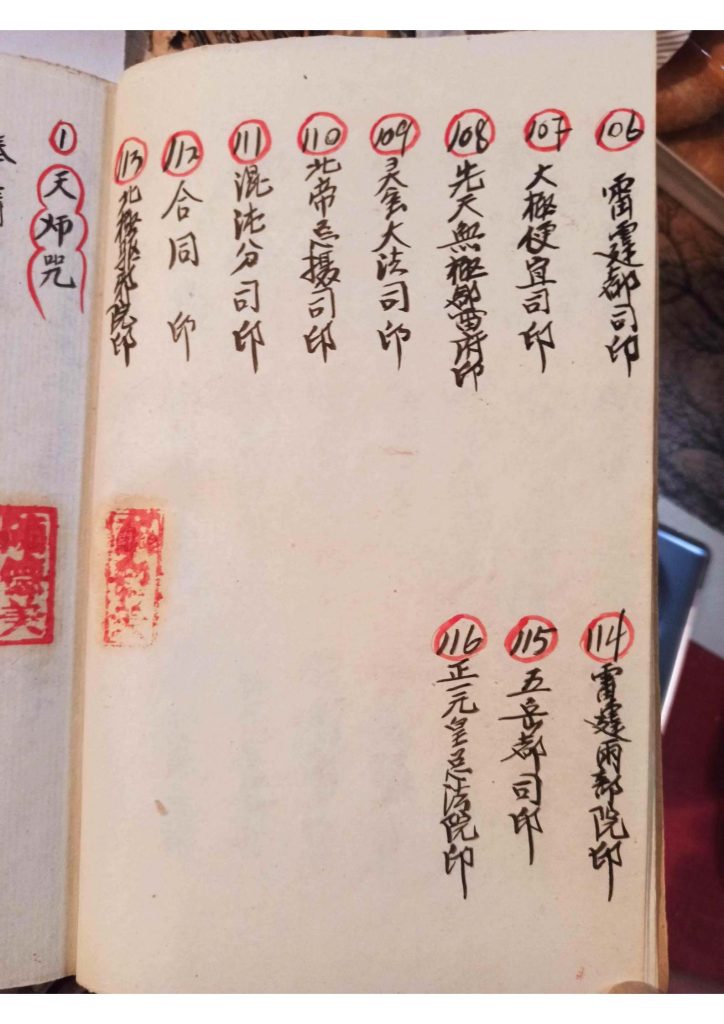 106 雷霆都司印
107 大極便宜司印
108 先天無極都雷府印
109 灵宝大法司印
110 北帝总摄司印
111 混沌分司印
112 合同印
113 北極驱邪院印
114 雷霆兩部院印
115 五岳都司印
116 正一元皇总法院印
1 天师咒